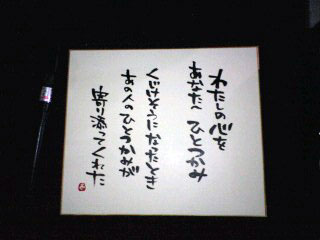 わたしの心を
あなたへ ひとつかみ
くじけそうになったとき
あの人の ひとつかみが
寄り添ってくれた